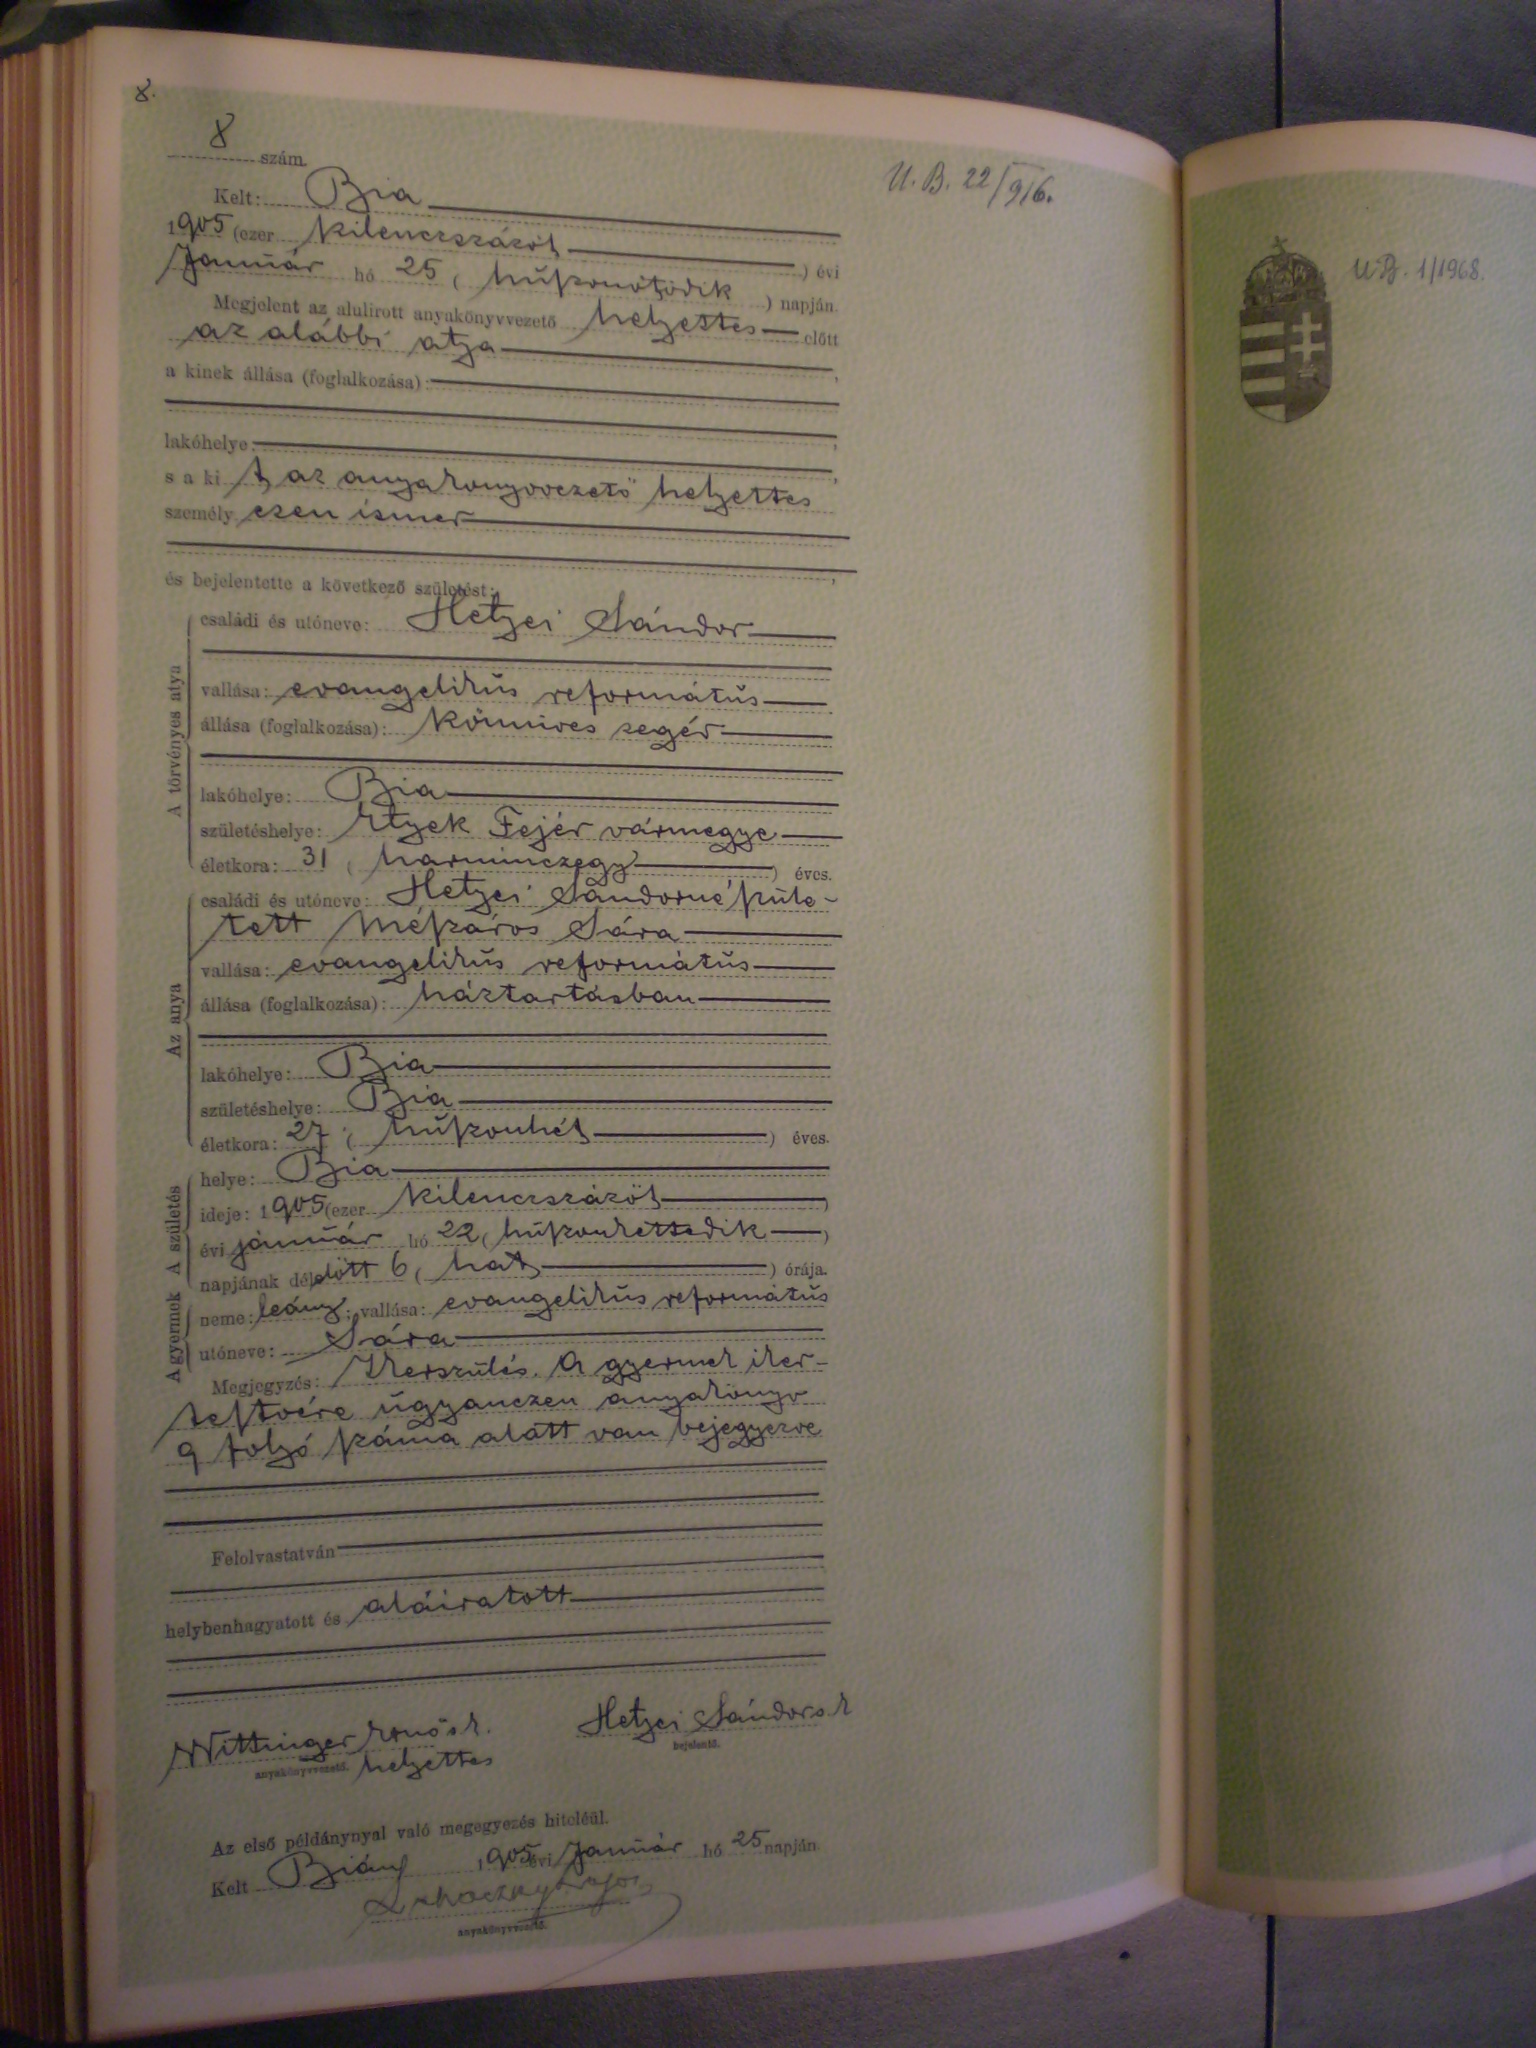 8.
8 szám.
U. B. 22/916.
Kelt: Bia
1905 (ezer kilenczszázöt ) évi
Január hó 25 ( húszonötödik ) napján.
Megjelent az alulirott anyakönyvvezető helyettes előtt
az alábbi atya
a kinek állása (foglalkozása):
lakóhelye:
s a ki t, az anyakönyvvezető helyettes
személyesen ismer
és bejelentette a következő születést:
A törvényes atya
családi és utóneve: Hetyei Sándor
vallása: evangelikus református
állása (foglalkozása): kőmives segéd
lakóhelye: Bia
születéshelye: Etyek Fejér vármegye
életkora: 31 ( harminczegy ) éves.
Az anya
családi és utóneve: Hetyei Sándorné szüle-
tett Mészáros Sára
vallása: evangelikus református
állása (foglalkozása): háztartásban
lakóhelye: Bia
születéshelye: Bia
életkora: 27 ( húszonhét ) éves.
A születés
helye: Bia
ideje: 1905 (ezer kilenczszázöt )
évi január hó 22 ( húszonkettedik )
napjának délelőtt 6 ( hat ) órája.
A gyermek
neme: leány; vallása: evangelikus református
utóneve: Sára
Megjegyzés: Ikerszülés. A gyermek iker-
testvére úgyanezen anyakönyv
9 folyó száma alatt van bejegyezve
Felolvastatván
helybenhagyatott és aláiratott
Wittinger Ernő s. k.
helyettes
anyakönyvvezető.
Hetyei Sándor s. k
bejelentő.
Az első példánynyal való megegyezés hiteléül.
Kelt Bián 1905 évi Január hó 25 napján.
Lajos
anyakönyvvezető.
U. B. 1/1968.